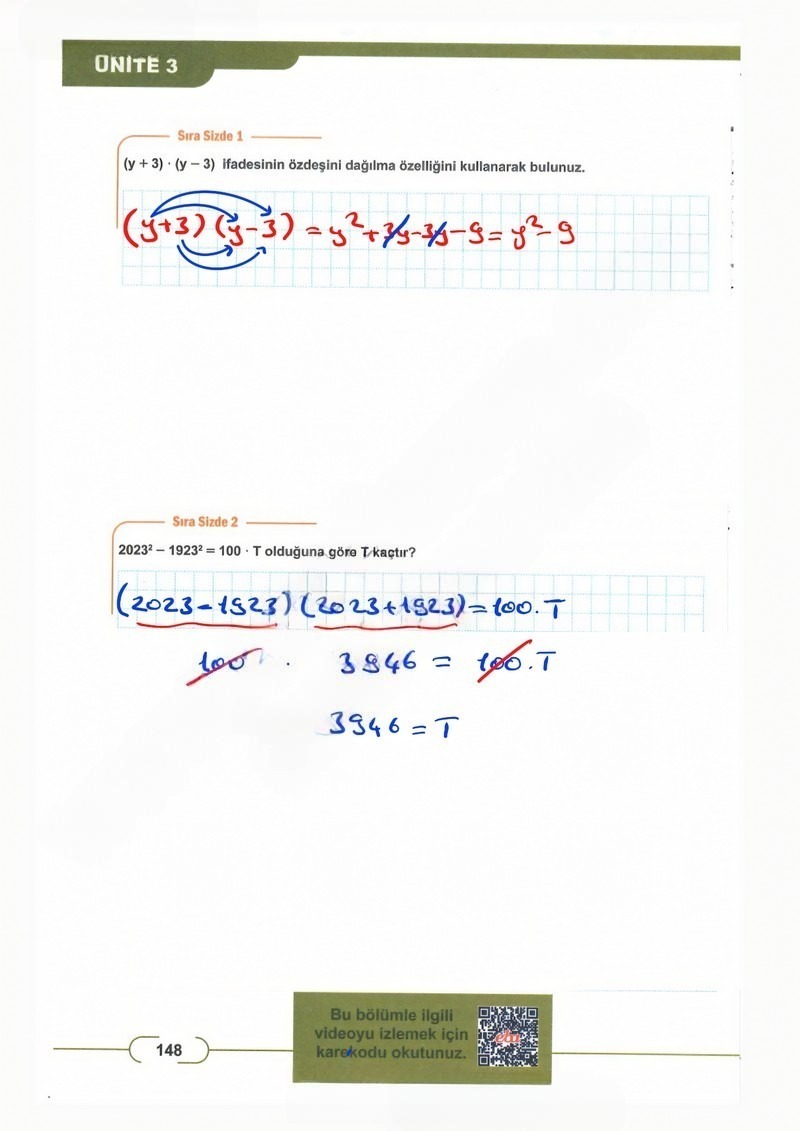 ÜNİTE 3
Sıra Sizde 1
(y + 3) · (y − 3) ifadesinin özdeşini dağılma özelliğini kullanarak bulunuz.
(y+3)(y-3) = y²+3y-3y-9 = y²-9
Sıra Sizde 2
2023² − 1923² = 100 · T olduğuna göre T kaçtır?
(2023-1923)(2023+1923)=100.T
100 . 3946 = 100.T
3946 = T
Bu bölümle ilgili
videoyu izlemek için
karekodu okutunuz.
eba
148